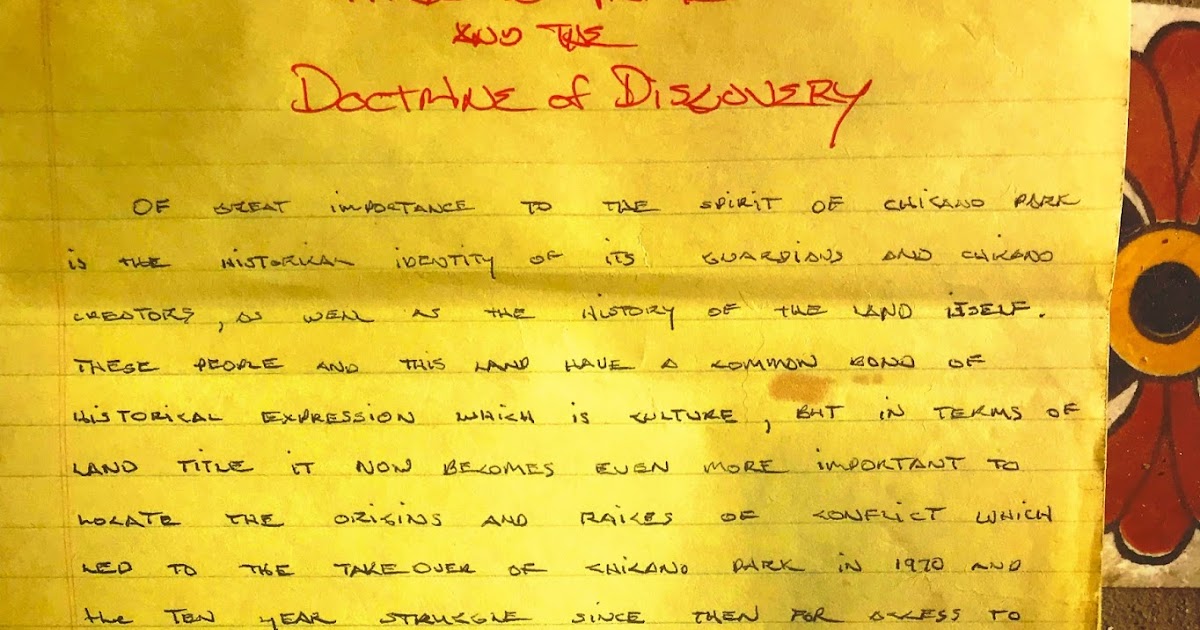 AND THE
DOCTRINE of DISCOVERY
OF GREAT IMPORTANCE TO THE SPIRIT OF CHICANO PARK
is THE HISTORICAL IDENTITY OF ITS GUARDIANS AND CHICANO
CREATORS, AS WELL AS THE HISTORY OF THE LAND ITSELF.
THESE PEOPLE AND THIS LAND HAVE A COMMON BOND OF
HISTORICAL EXPRESSION WHICH IS CULTURE, BUT IN TERMS OF
LAND TITLE IT NOW BECOMES EVEN MORE IMPORTANT TO
LOCATE THE ORIGINS AND RAICES OF CONFLICT WHICH
LED TO THE TAKEOVER OF CHICANO PARK IN 1970 AND
the TEN YEAR STRUGGLE SINCE THEN FOR ACCESS TO